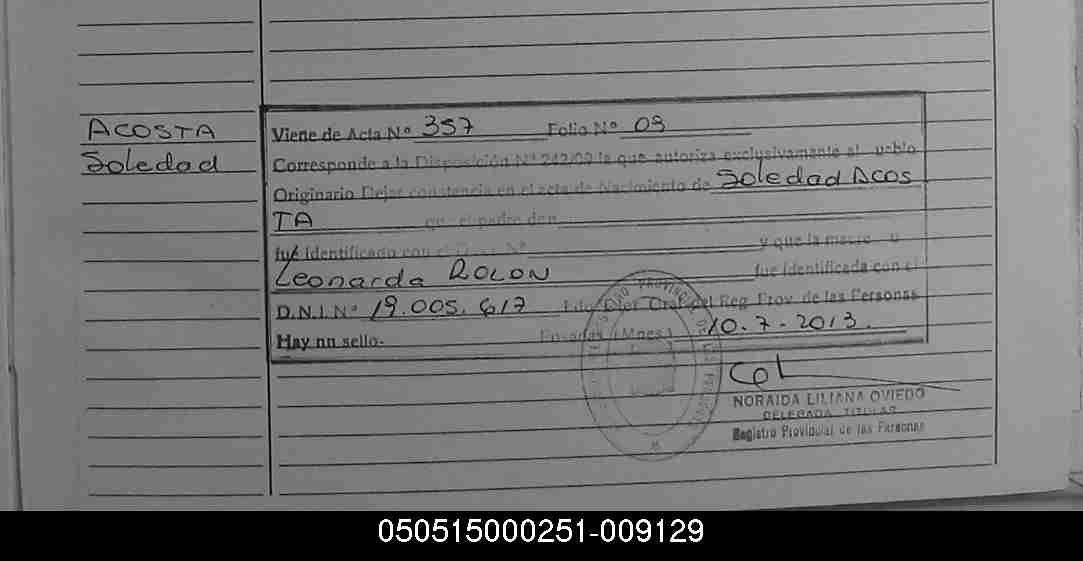 ACOSTA
Soledad
Viene de Acta Nº 357 Folio Nº 09
Corresponde a la Disposición Nº 242/09 la que autoriza exclusivamente al ueblo
Originario Dejar constancia en el acta de Nacimiento de Soledad Acos
TA que el padre don
fué identificado con el Nº y que la madre
Leonarda ROLON fue identificada con el
D.N.I. Nº 19.005.617 Fdo Dier. Gral del Reg. Prov. de las Personas
Hay un sello. Posadas (Mnes.) 10.7-2013.
NORAIDA LILIANA OVIEDO
DELEGADA TITULAR
Registro Provincial de las Personas
050515000251-009129